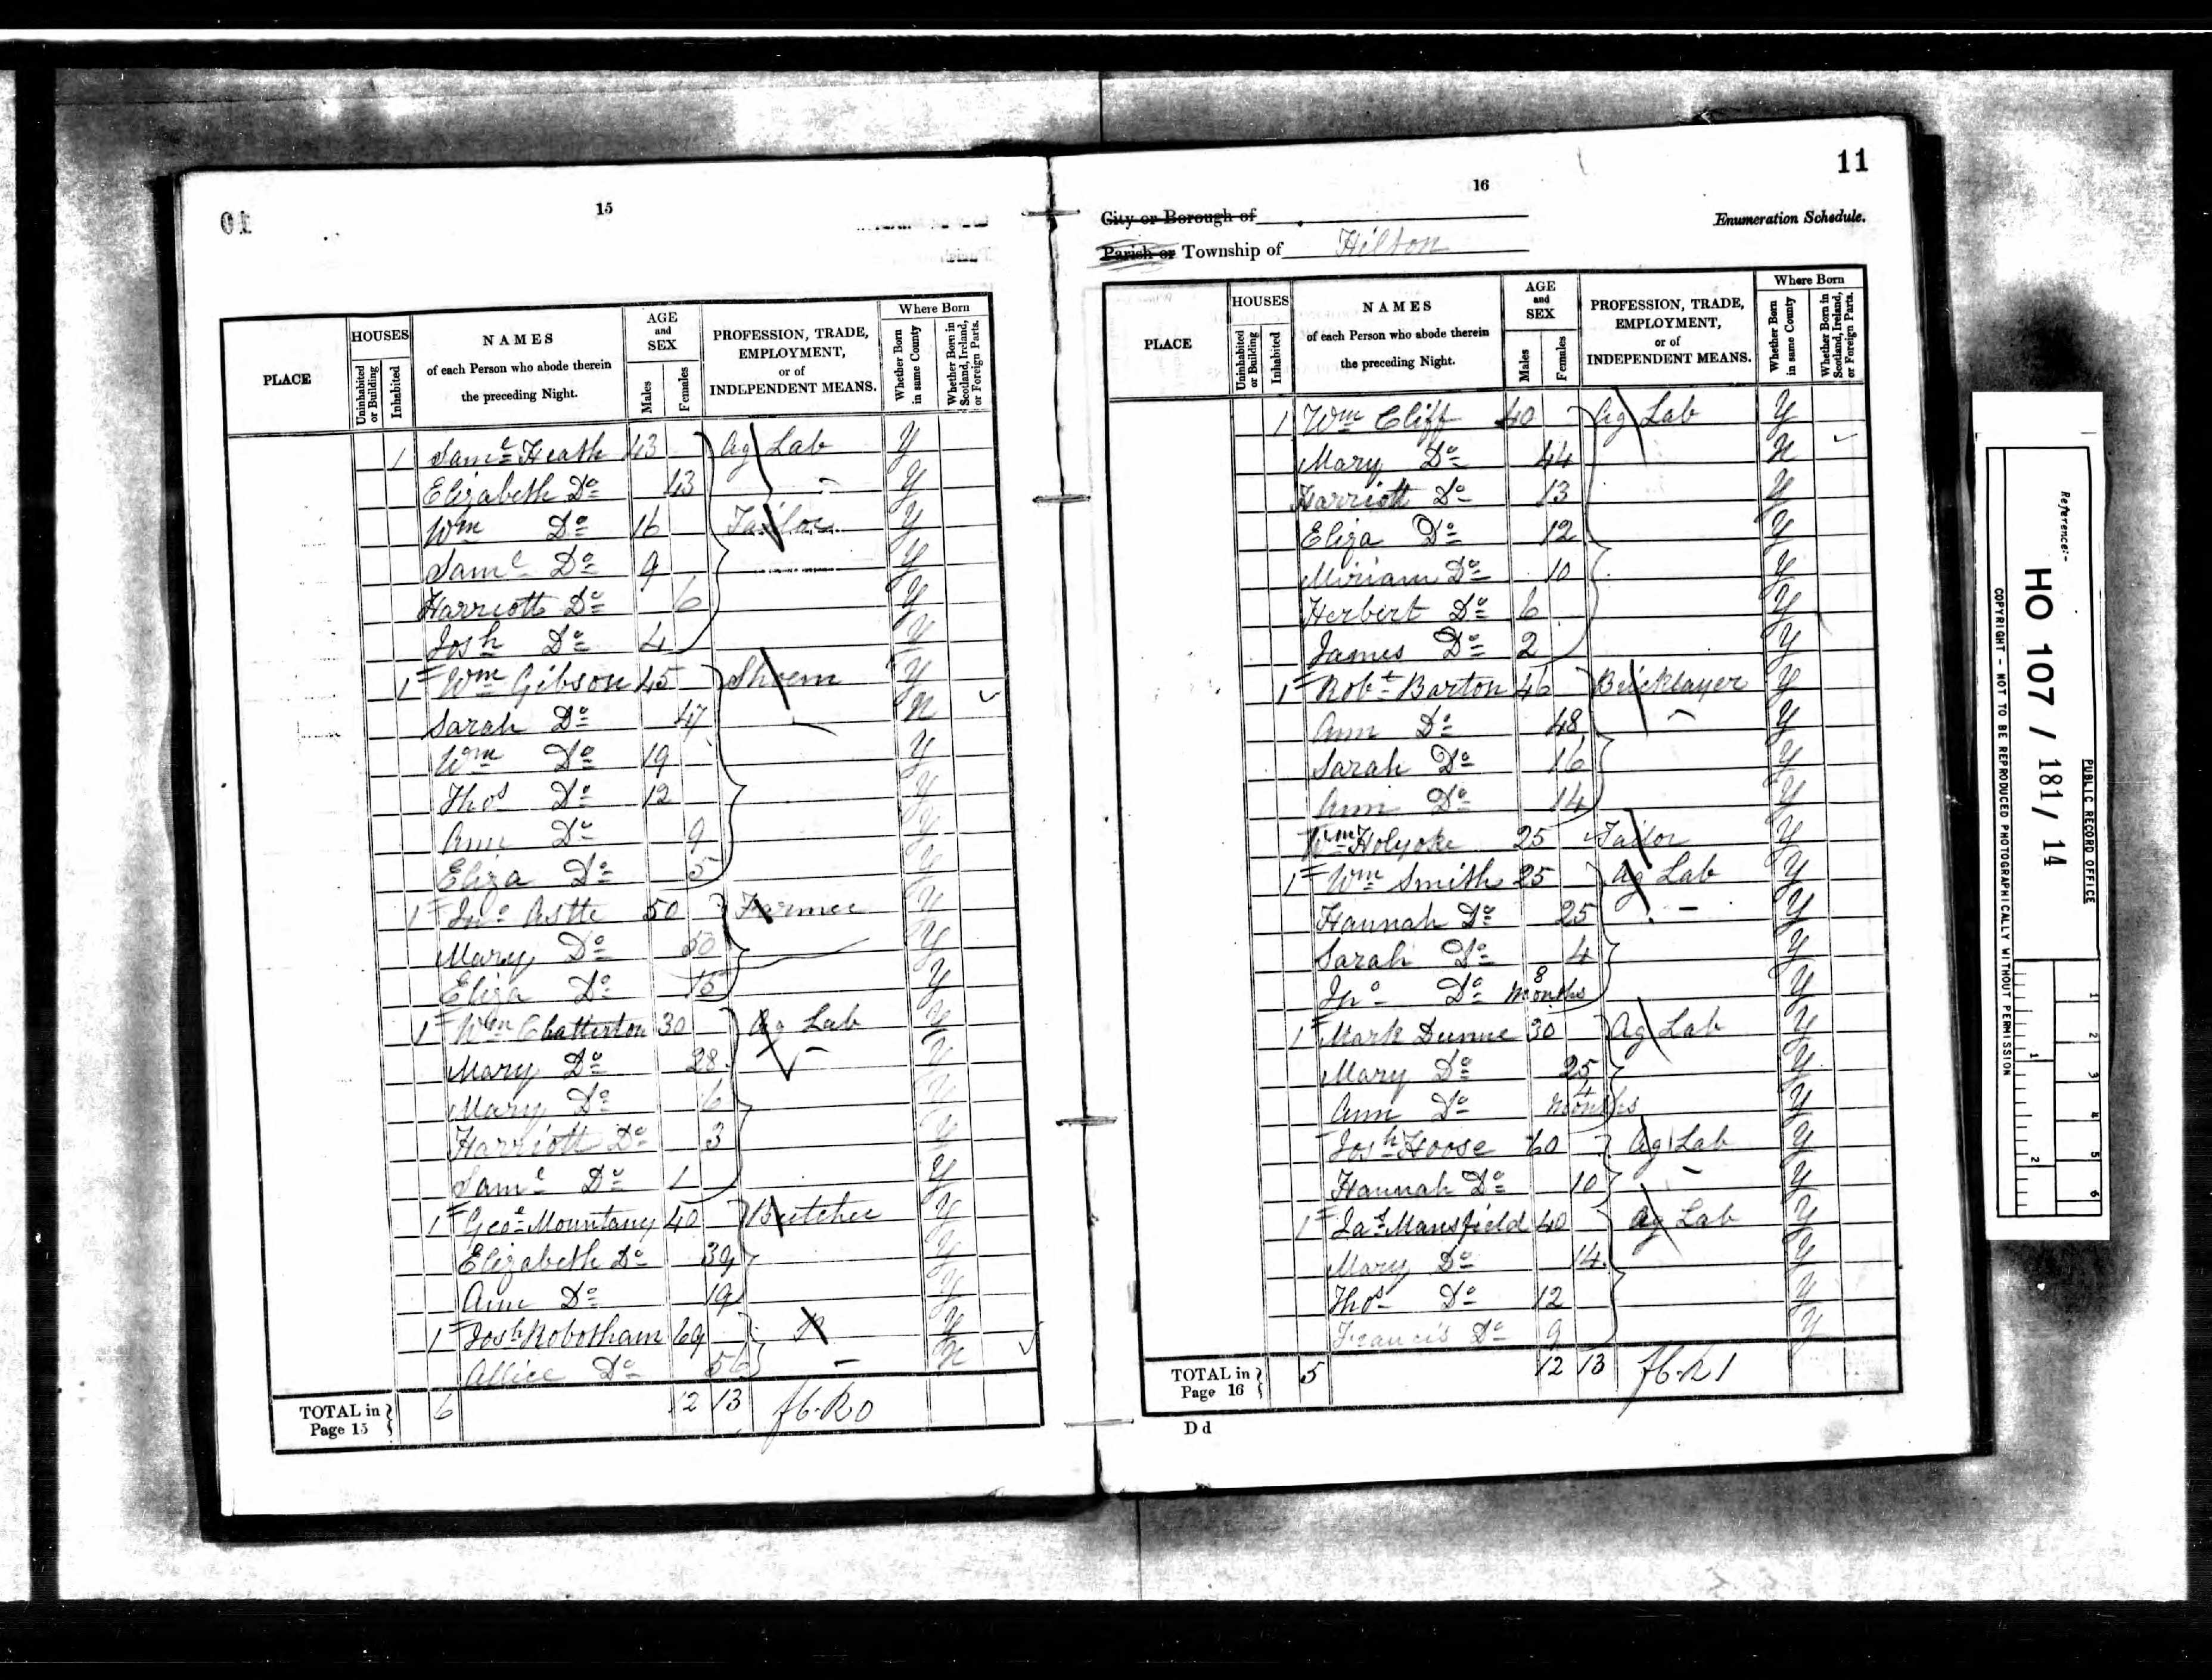 15
HOUSES
PLACE
Uninhabited or Building
Inhabited
NAMES
of each Person who abode therein
the preceding Night.
AGE
and
SEX
Males
Females
PROFESSION, TRADE,
EMPLOYMENT,
or of
INDEPENDENT MEANS.
Where Born
Whether Born in same County
Whether Born in Scotland, Ireland, or Foreign Parts.
1 Saml Heath 43 Ag Lab Y
Elizabeth Do 43 Y
Wm Do 16 Tailor Y
Saml Do 9 Y
Harriott Do 6 Y
Josh Do 4 Y
1 Wm Gibson 45 Shoem Y
Sarah Do 47 N
Wm Do 19 Y
Thos Do 12 Y
Ann Do 9 Y
Eliza Do 5 Y
1 Jno Astle 50 Farmer Y
Mary Do 50 Y
Eliza Do 15 Y
1 Wm Chatterton 30 Ag Lab Y
Mary Do 28 Y
Mary Do 6 Y
Harriott Do 3 Y
Saml Do 1 Y
1 Geoe Mountany 40 Butcher Y
Elizabeth Do 39 Y
Ann Do 19 Y
1 Josh Robotham 69 Y
Allice Do 56 N
TOTAL in Page 15 6 12 13
11
16
City or Borough of
Enumeration Schedule.
Parish or Township of Hilton
PLACE
HOUSES
Uninhabited or Building
Inhabited
NAMES
of each Person who abode therein
the preceding Night.
AGE
and
SEX
Males
Females
PROFESSION, TRADE,
EMPLOYMENT,
or of
INDEPENDENT MEANS.
Where Born
Whether Born in same County
Whether Born in Scotland, Ireland, or Foreign Parts.
1 Wm Cliff 40 Ag Lab Y
Mary Do 44 N
Harriott Do 13 Y
Eliza Do 12 Y
Miriam Do 10 Y
Herbert Do 6 Y
James Do 2 Y
1 Robt Barton 46 Bricklayer Y
Ann Do 48 Y
Sarah Do 16 Y
Ann Do 14 Y
Wm Holyoke 25 Tailor Y
1 Wm Smith 25 Ag Lab Y
Hannah Do 25 Y
Sarah Do 4 Y
Jno Do 8 Months Y
1 Mark Dunne 30 Ag Lab Y
Mary Do 25 Y
Ann Do 4 Months Y
Josh Hoose 60 Ag Lab Y
Hannah Do 10 Y
1 Jas Mansfield 40 Ag Lab Y
Mary Do 14 Y
Thos Do 12 Y
Francis Do 9 Y
TOTAL in Page 16 5 12 13
D d
PUBLIC RECORD OFFICE
Reference:-
HO 107 / 181 / 14
COPYRIGHT - NOT TO BE REPRODUCED PHOTOGRAPHICALLY WITHOUT PERMISSION
1 2 3 4 5 6
1 2